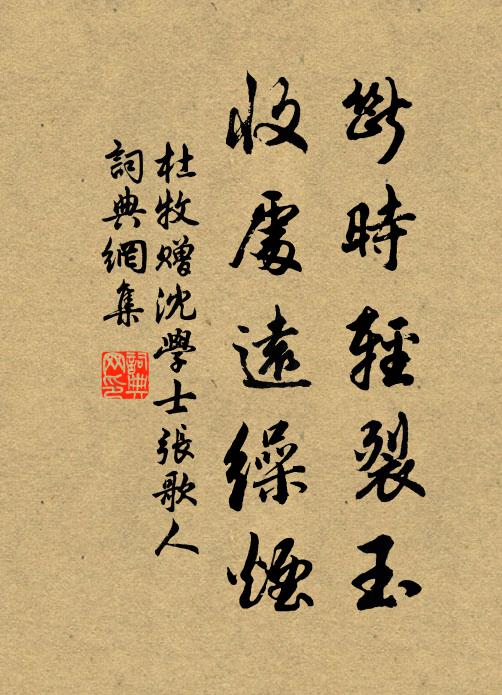 斷時輕裂玉
收處遠繰煙
杜牧贈沈學士張歌人
詞典網集
詞典
网印